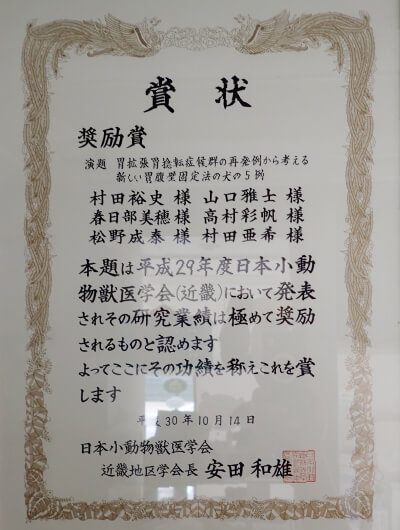 賞状
奨励賞
演題 胃拡張胃捻転症候群の再発例から考える
新しい胃腹壁固定法の犬の5例
村田裕史 様 山口雅士 様
春日部美穂 様 高村彩帆 様
松野成泰 様 村田亜希 様
本題は平成29年度日本小動
物獣医学会(近畿)において発表
されその研究業績は極めて奨励
されるものと認めます
よってここにその功績を称えこれを賞
します
平成30年10月14日
日本小動物獣医学会
近畿地区学会長 安田和雄